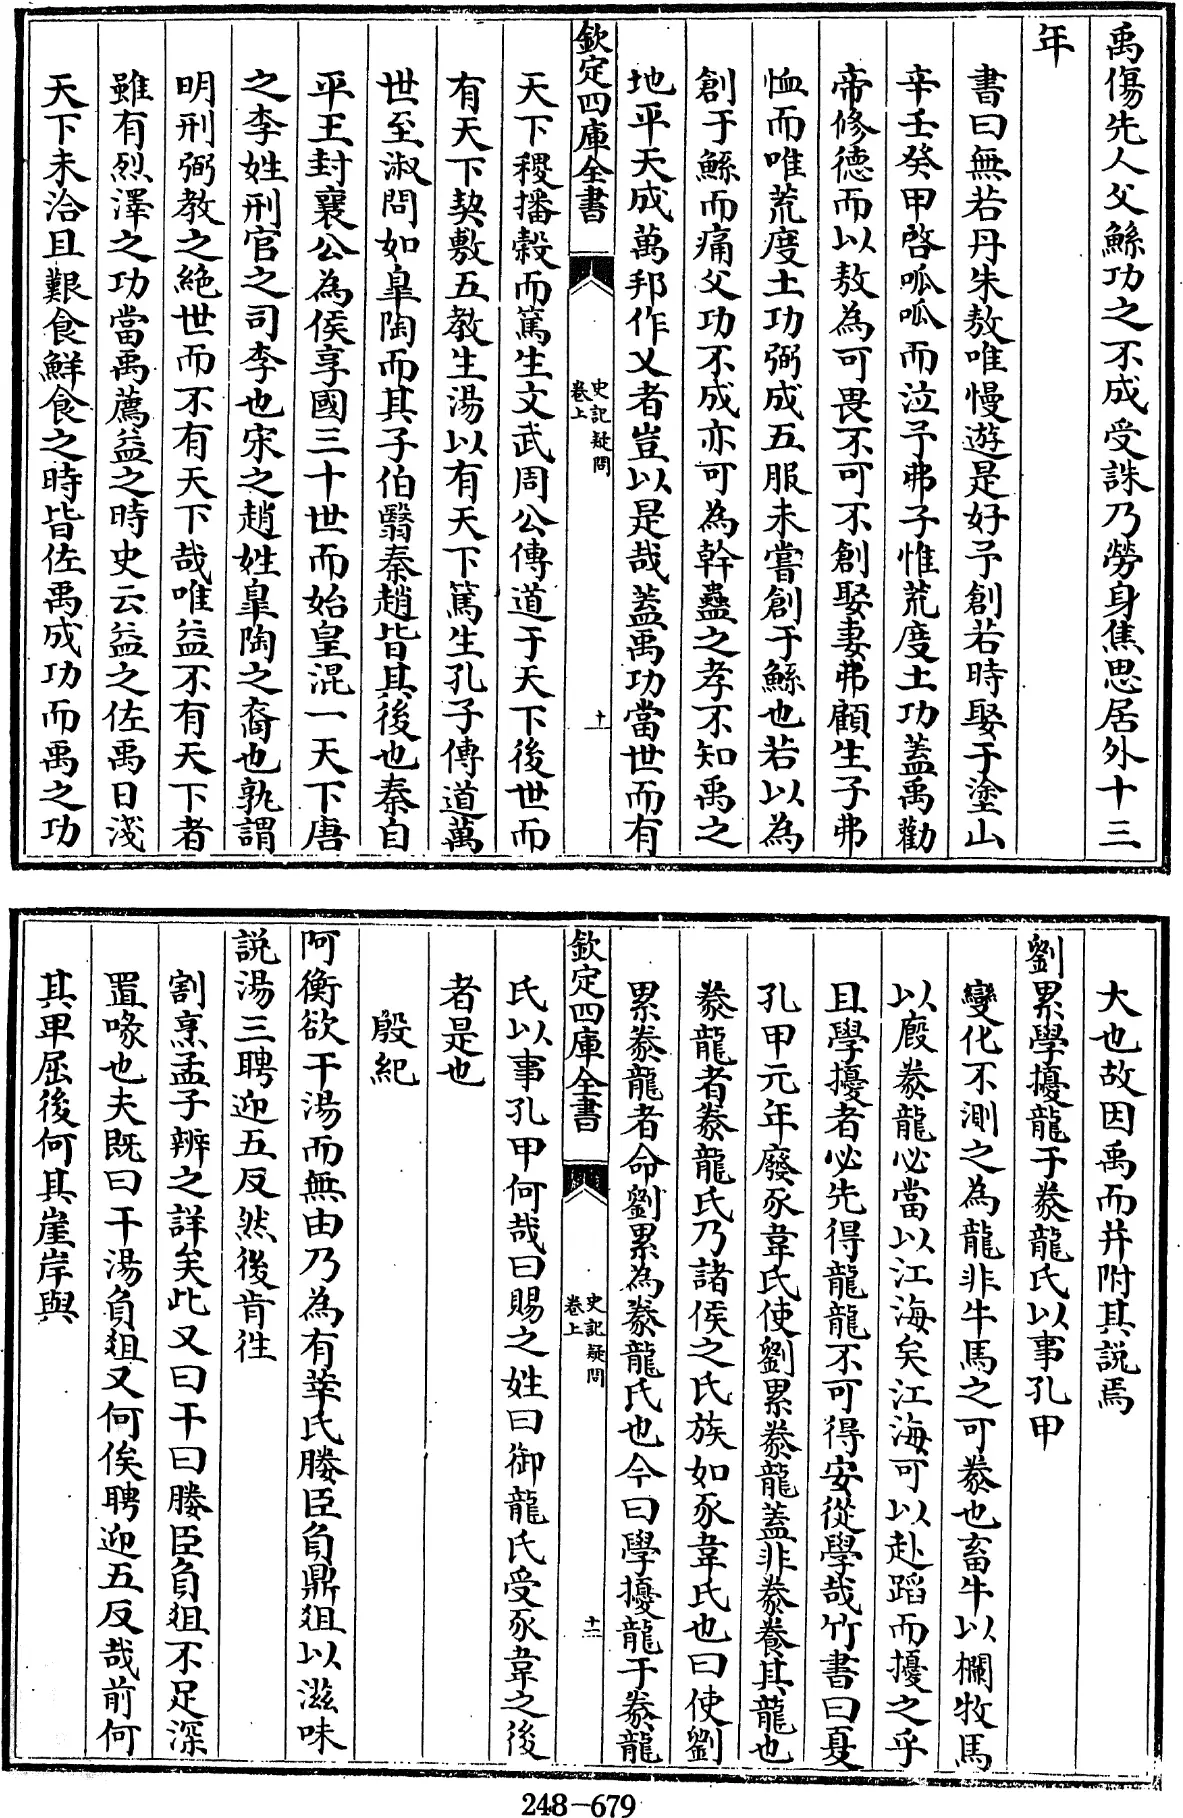 禹傷先人父鯀功之不成受誅乃勞身焦思居外十三
年
書曰無若丹朱敖唯慢遊是好予創若時娶于塗山
辛壬癸甲啓呱呱而泣予弗子惟荒度土功蓋禹勸
帝修德而以敖為可畏不可不創娶妻弗顧生子弗
恤而唯荒度土功弼成五服未嘗創于鯀也若以為
創于鯀而痛父功不成亦可為幹蠱之孝不知禹之
地平天成萬邦作乂者豈以是哉蓋禹功當世而有
欽定四庫全書
史記疑問
卷上
十一
天下稷播榖而篤生文武周公傳道于天下後世而
有天下契敷五教生湯以有天下篤生孔子傳道萬
世至淑問如臯陶而其子伯翳秦趙皆其後也秦自
平王封襄公為侯享國三十世而始皇混一天下唐
之李姓刑官之司李也宋之趙姓臯陶之裔也孰謂
明刑弼教之絶世而不有天下哉唯益不有天下者
雖有烈澤之功當禹薦益之時史云益之佐禹日淺
天下未洽且艱食鮮食之時皆佐禹成功而禹之功
大也故因禹而并附其説焉
劉累學擾龍于豢龍氏以事孔甲
變化不測之為龍非牛馬之可豢也畜牛以欄牧馬
以廐豢龍必當以江海矣江海可以赴蹈而擾之乎
且學擾者必先得龍龍不可得安從學哉竹書曰夏
孔甲元年廢豕韋氏使劉累豢龍蓋非豢養其龍也
豢龍者豢龍氏乃諸侯之氏族如豕韋氏也曰使劉
累豢龍者命劉累為豢龍氏也今曰學擾龍于豢龍
欽定四庫全書
史記疑問
卷上
十二
氏以事孔甲何哉曰賜之姓曰御龍氏受豕韋之後
者是也
殷紀
阿衡欲干湯而無由乃為有莘氏媵臣負鼎俎以滋味
説湯三聘迎五反然後肯徃
割烹孟子辨之詳矣此又曰干曰媵臣負俎不足深
置喙也夫既曰干湯負俎又何俟聘迎五反哉前何
其卑屈後何其崖岸與
248-679